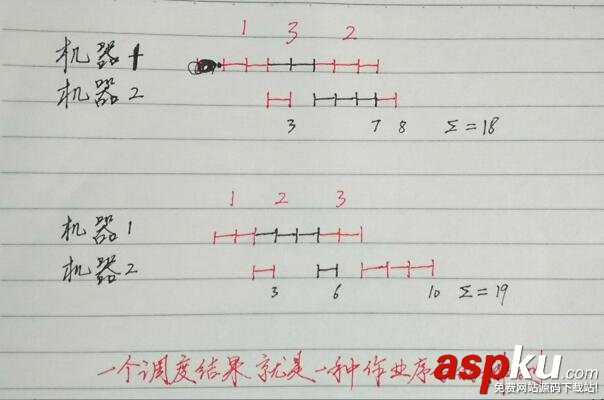 1 3 2
机器1
机器2
3 7 8 Σ=18
1 2 3
机器1
机器2
3 6 10 Σ=19
一个调度结果就是一种作业序
aspku.com
免费网站源码下载站!